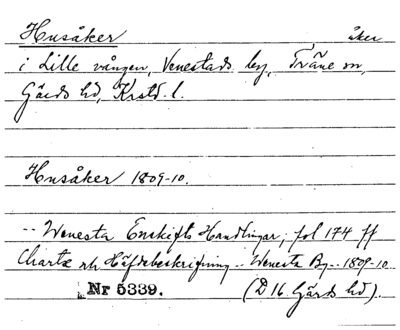 Husåker åker
i Lille vången, Venestads by, Träne sn,
Gärds hd, Krstd. l.
Husåker 1809-10.
-- Wenesta Enskifts Handlingar, fol 174 ff
Charta och Häfdebeskrifning -- Wenesta By -- 1809-10
Nr 5339. (D 16 Gärds hd).